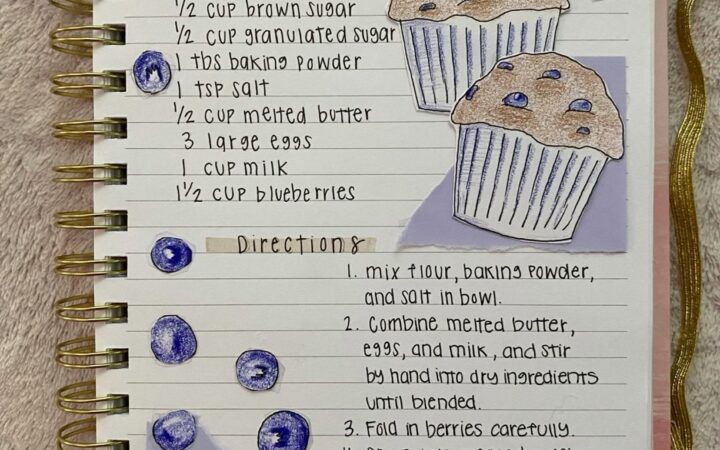 1/2 cup brown sugar
1/2 cup granulated sugar
1 tbs baking powder
1 tsp salt
1/2 cup melted butter
3 large eggs
1 cup milk
1 1/2 cup blueberries
Directions
1. mix flour, baking powder,
and salt in bowl.
2. Combine melted butter,
eggs, and milk, and stir
by hand into dry ingredients
until blended.
3. Fold in berries carefully.